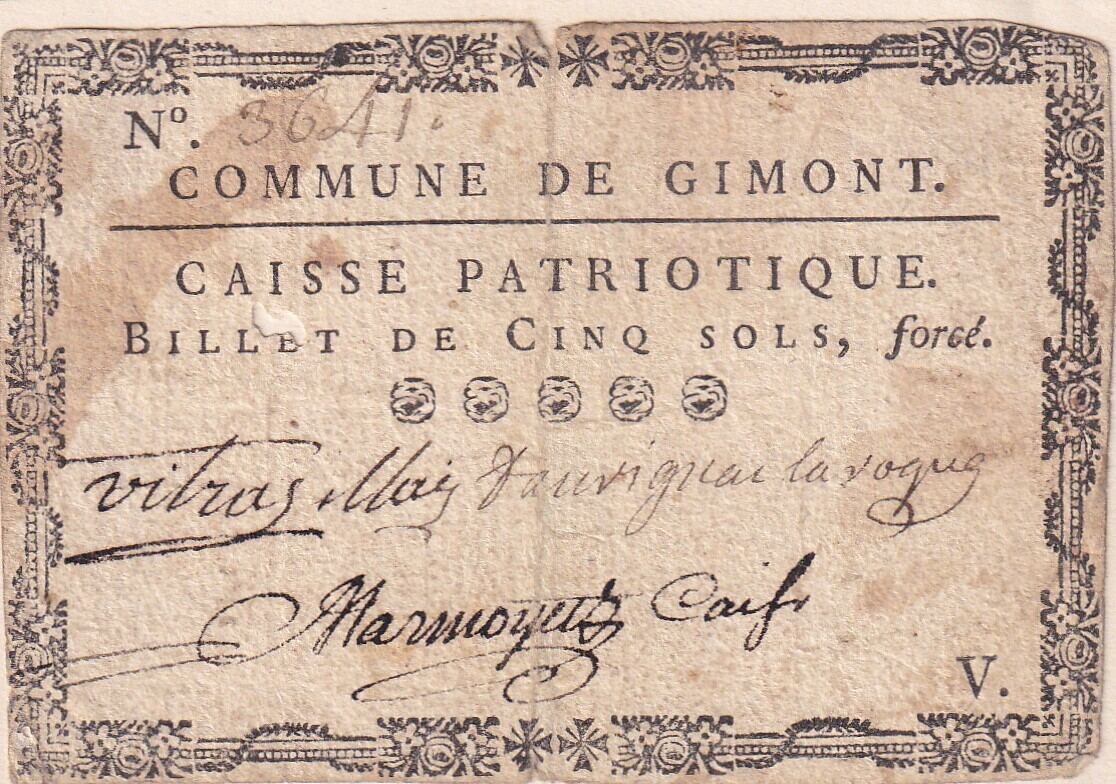 Nº. 3641.
COMMUNE DE GIMONT.
CAISSE PATRIOTIQUE.
BILLET DE CINQ SOLS, forcé.
vitras Dauvignac laroque
Caiss
V.